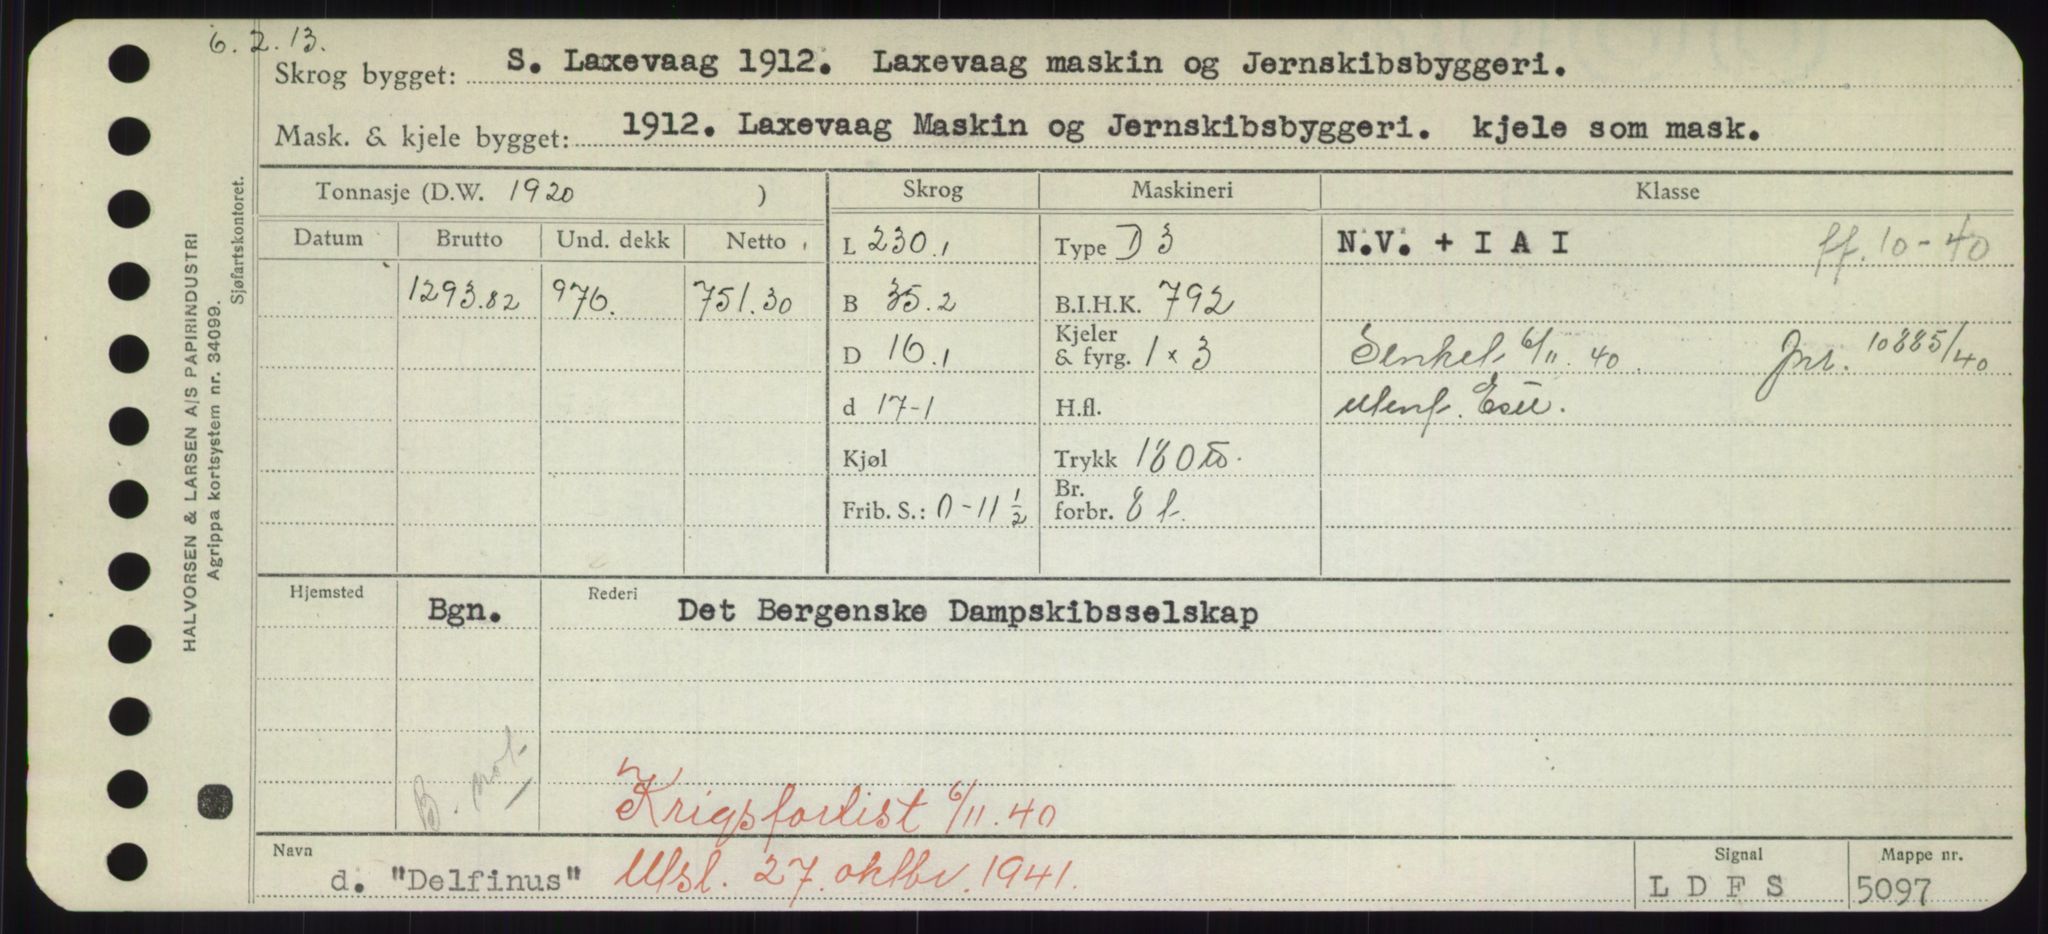 6.2.13.
Skrog bygget: S. Laxevaag 1912. Laxevaag maskin og Jernskibsbyggeri.
Mask. & kjele bygget: 1912. Laxevaag Maskin og Jernskibsbyggeri. kjele som mask.
Tonnasje (D.W. 1920 ) Skrog Maskineri Klasse
Datum Brutto Und. dekk Netto L 230.1 Type D 3 N.V. + I A I ff. 10-40
1293.82 976. 751.30 B 35.2 B.I.H.K. 792
D 16.1 Kjeler & fyrg. 1 x 3 Senket 6/11.40. Jnr. 10885/40
d 17-1 H.fl. utenf.
Kjøl Trykk 180
Frib. S.: 0-11 1/2 Br. forbr. 8 t.
Hjemsted Bgn. Rederi Det Bergenske Dampskibsselskap
B. not.
Krigsforlist 6/11.40
Navn d. "Delfinus" Utsl. 27. oktbr. 1941. Signal L D F S Mappe nr. 5097
HALVORSEN & LARSEN A/S PAPIRINDUSTRI
Agrippa kortsystem nr. 34099.
Sjøfartskontoret.